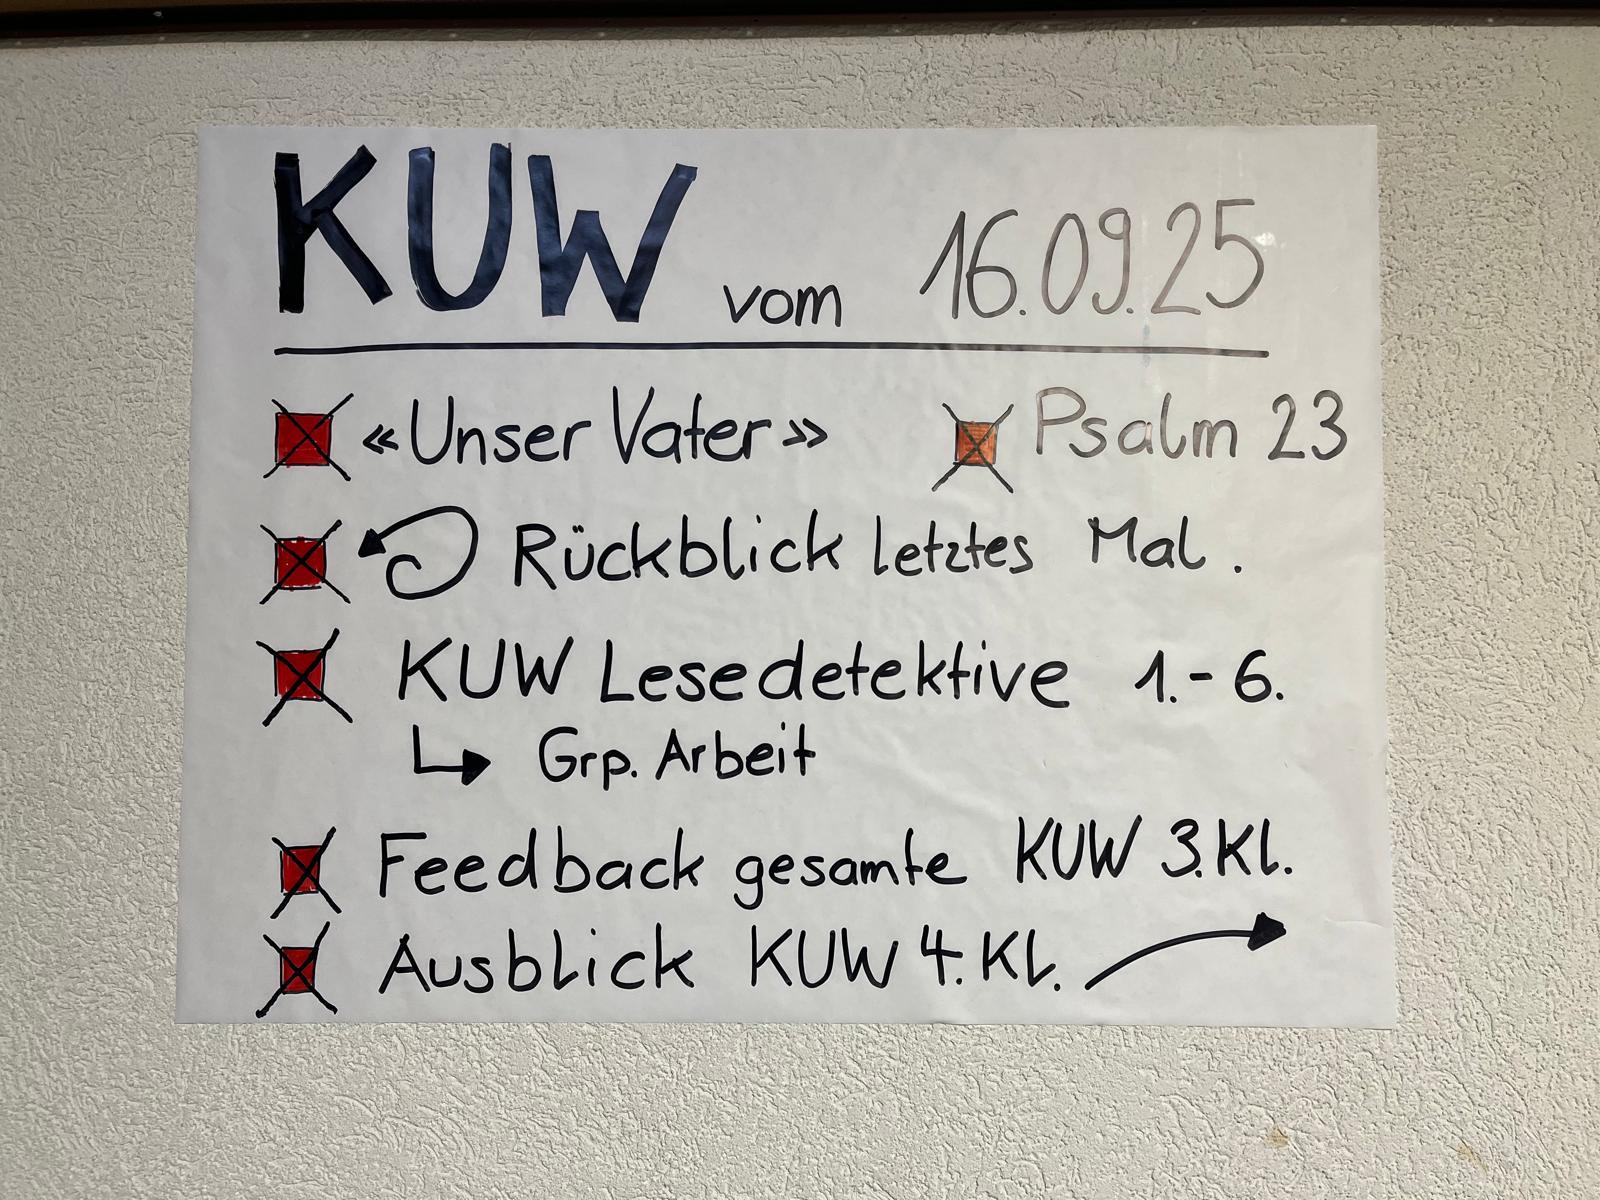 KUW vom 16.09.25
«Unser Vater» Psalm 23
Rückblick letztes Mal.
KUW Lesedetektive 1.-6.
Grp. Arbeit
Feedback gesamte KUW 3.Kl.
Ausblick KUW 4.Kl.